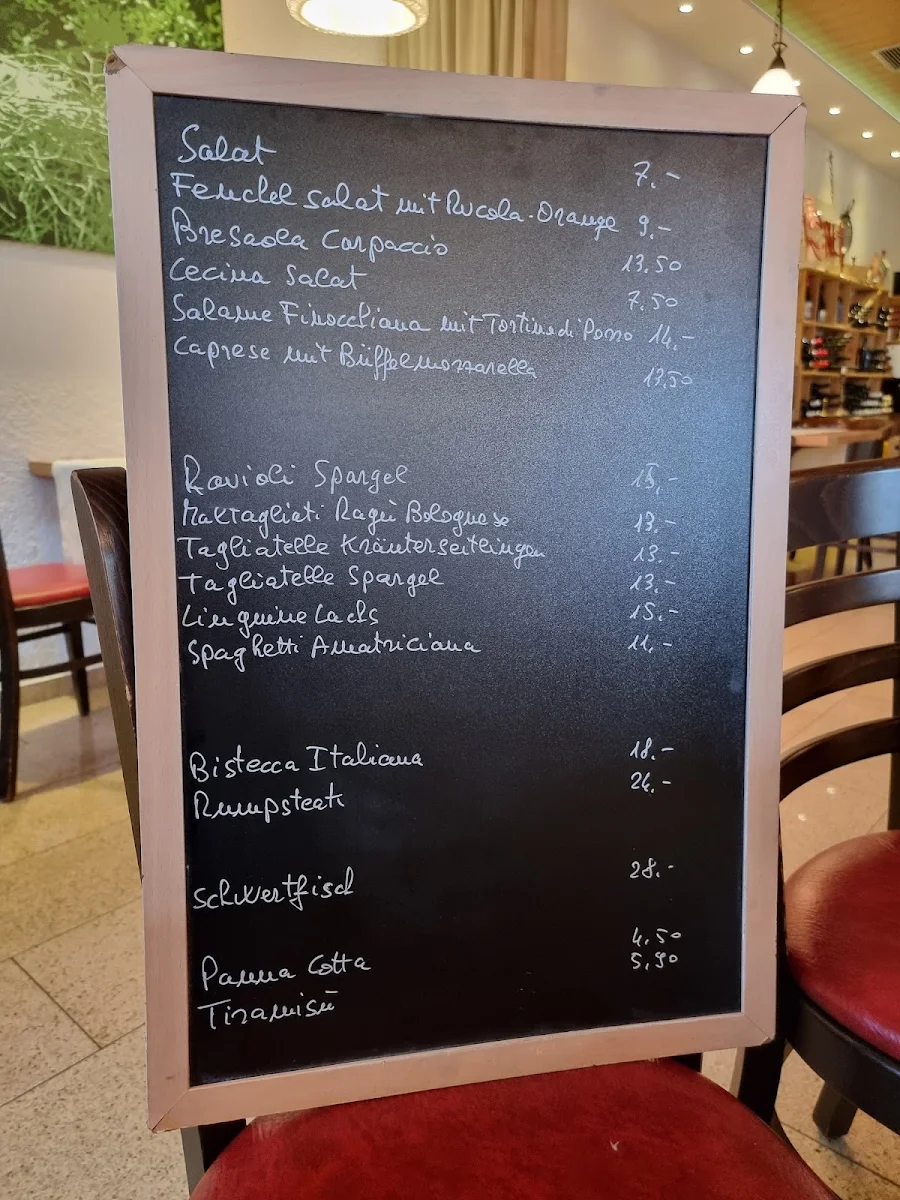 Salat 7.-
Fenchel salat mit Rucola-Orange 9.-
Bresaola Carpaccio 13.50
Cecina Salat 7.50
Salame Finocchiana mit Tortine di Porro 14.-
Caprese mit Büffelmozzarella 13,50
Ravioli Spargel 15,-
Maltagliati Ragù Bolognese 13.-
Tagliatelle Kräuterseitlingen 13.-
Tagliatelle Spargel 13.-
Linguine Lachs 15.-
Spaghetti Amatriciana 11,-
Bistecca Italiana 18.-
Rumpsteak 24,-
Schwertfisch 28.-
Panna Cotta 4,50
Tiramisù 5,90